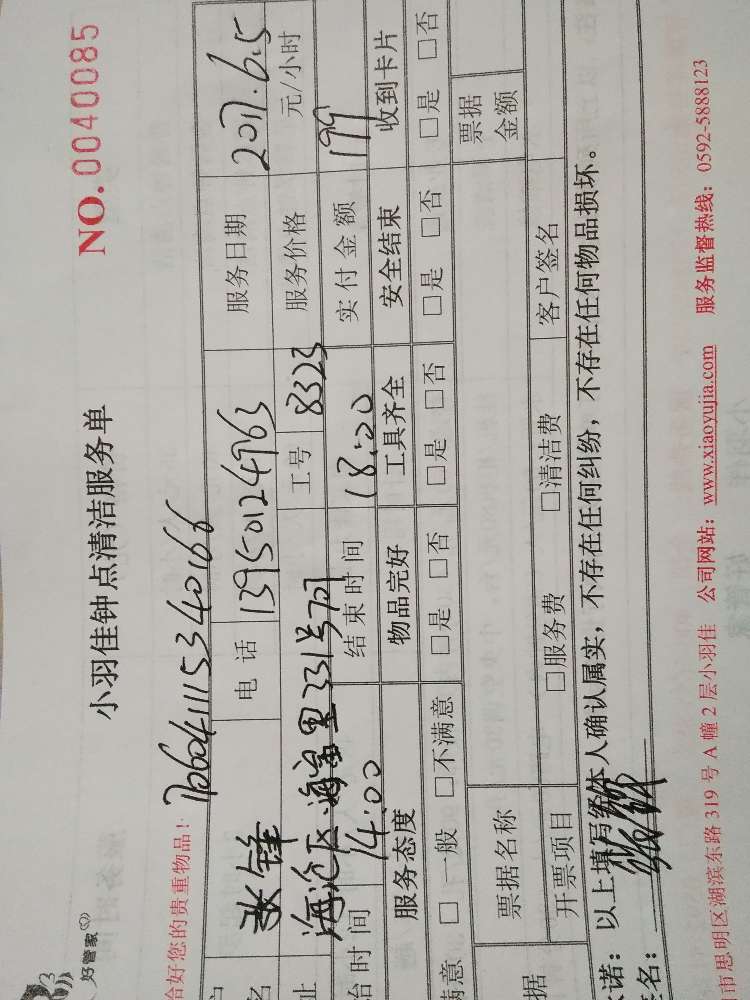 好管家
小羽佳钟点清洁服务单
NO.0040085
恰好您的贵重物品！
户 张锋 电话 13950124963 服务日期 2017.6.5
名 工号 8323 服务价格 元/小时
址 海沧区海富里331号701
始时间 14:00 结束时间 18:00 实付金额 199
服务态度 物品完好 工具齐全 安全结束 收到卡片
满意 □一般 □不满意 □是 □否 □是 □否 □是 □否 □是 □否
据 票据名称 票据金额
开票项目 □服务费 □清洁费 客户签名
诺：以上填写经本人确认属实，不存在任何纠纷，不存在任何物品损坏。
名：
市思明区湖滨东路 319 号 A 幢 2 层小羽佳 公司网站：www.xiaoyujia.com 服务监督热线：0592-5888123